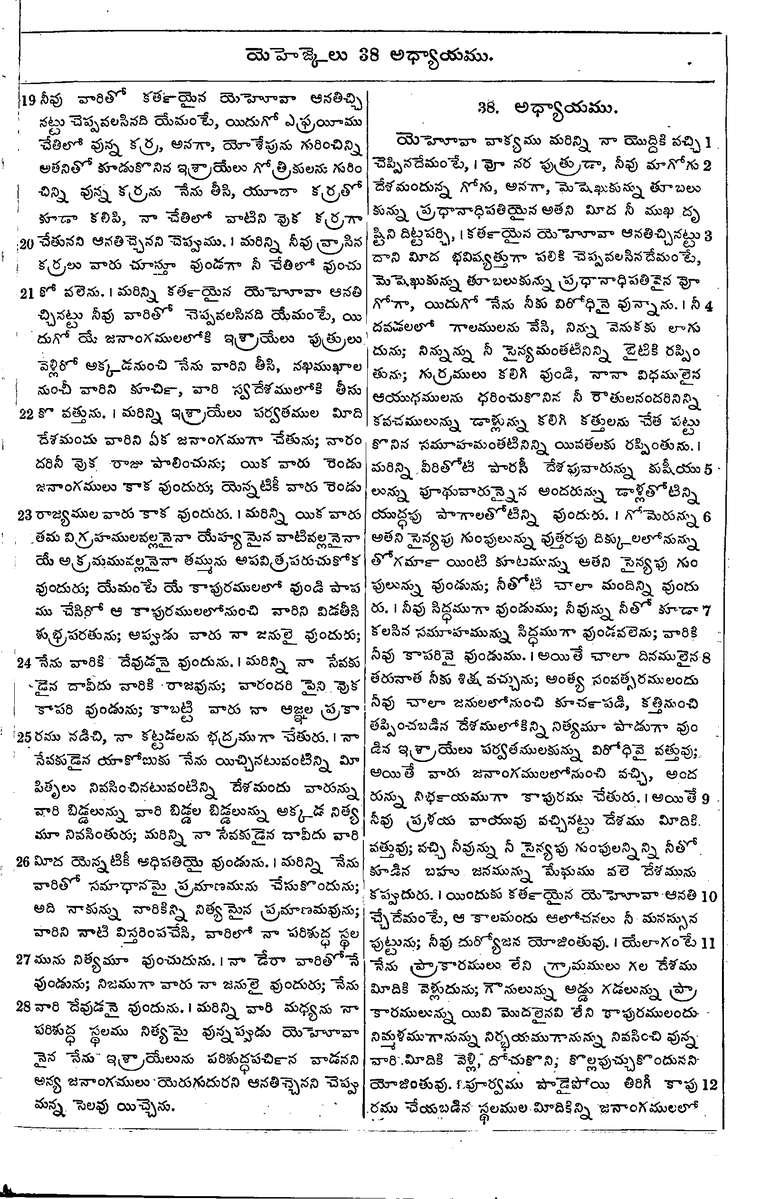 యెహెజ్కేలు 38 అధ్యాయము.
19 నీవు వారితో కర్తయైన యెహోవా ఆనతిచ్చి
నట్టు చెప్పవలసినది యేమంటే, యిదుగో ఎఫ్రయీము
చేతిలో వున్న కర్ర, అనగా, యోశేపును గురించిన్ని
అతనితో కూడుకొనిన ఇశ్రాయేలు గోత్రికులను గురిం
చిన్ని వున్న కర్రను నేను తీసి, యూదా కర్రతో
కూడా కలిపి, నా చేతిలో వాటిని వొక కర్రగా
20 చేతునని ఆనతిచ్చెనని చెప్పుము. । మరిన్ని నీవు వ్రాసిన
కర్రలు వారు చూస్తూ వుండగా నీ చేతిలో వుంచు
21 కో వలెను. । మరిన్ని కర్తయైన యెహోవా ఆనతి
చ్చినట్టు నీవు వారితో చెప్పవలసినది యేమంటే, యి
దుగో యే జనాంగములలోకి ఇశ్రాయేలు పుత్రులు
వెళ్లిరో అక్కడనుంచి నేను వారిని తీసి, నఖముఖాల
నుంచీ వారిని కూర్చి, వారి స్వదేశములోకి తీసు
22 కొ వత్తును. । మరిన్ని ఇశ్రాయేలు పర్వతముల మీది
దేశమందు వారిని ఏక జనాంగముగా చేతును; వారం
దరినీ వొక రాజు పాలించును; యిక వారు రెండు
జనాంగములు కాక వుందురు; యెన్నటికీ వారు రెండు
23 రాజ్యముల వారు కాక వుందురు. । మరిన్ని యిక వారు
తమ విగ్రహములవల్లనైనా యేహ్యమైన వాటివల్లనైనా
యే అక్రమమువల్లనైనా తమ్మును అపవిత్రపరుచుకోక
వుందురు; యేమంటే యే కాపురములలో వుండి పాప
ము చేసిరో ఆ కాపురములలోనుంచి వారిని విడతీసి
శుభ్రపరతును; అప్పుడు వారు నా జనులై వుందురు;
24 నేను వారికి దేవుడనై వుందును. । మరిన్ని నా సేవకు
డైన దావీదు వారికి రాజవును; వారందరి పైని వొక
కాపరి వుండును; కాబట్టి వారు నా ఆజ్ఞల ప్రకా
25 రము నడిచి, నా కట్టడలను భద్రముగా చేతురు. । నా
సేవకుడైన యాకోబుకు నేను యిచ్చినటువంటిన్ని మీ
పితృలు నివసించినటువంటిన్ని దేశమందు వారున్ను
వారి బిడ్డలున్ను వారి బిడ్డల బిడ్డలున్ను అక్కడ నిత్య
మూ నివసింతురు; మరిన్ని నా సేవకుడైన దావీదు వారి
26 మీద యెన్నటికీ అధిపతియై వుండును. । మరిన్ని నేను
వారితో సమాధానమై ప్రమాణమును చేసుకొందును;
అది నాకున్ను వారికిన్ని నిత్యమైన ప్రమాణమవును;
వారిని నాటి విస్తరింపచేసి, వారిలో నా పరిశుద్ధ స్థల
27 మును నిత్యమూ వుంచుదును. । నా డేరా వారితోనే
వుండును; నిజముగా వారు నా జనులై వుందురు; నేను
28 వారి దేవుడనై వుందును. । మరిన్ని వారి మధ్యను నా
పరిశుద్ధ స్థలము నిత్యమై వున్నప్పుడు యెహోవా
నైన నేను ఇశ్రాయేలును పరిశుద్ధపర్చిన వాడనని
అన్య జనాంగములు యెరుగుదురని ఆనతిచ్చెనని చెప్పు
మన్న సెలవు యిచ్చెను.
38. అధ్యాయము.
యెహోవా వాక్యము మరిన్ని నా యొద్దికి వచ్చి 1
చెప్పినదేమంటే, । వో నర పుత్రుడా, నీవు మాగోగు 2
దేశమందున్న గోగు, అనగా, మెషెఖుకున్ను తూబలు
కున్ను ప్రధానాధిపతియైన అతని మీద నీ ముఖ దృ
ష్టిని దిట్టపర్చి, । కర్తయైన యెహోవా ఆనతిచ్చినట్టు 3
దాని మీద భవిష్యత్తుగా పలికి చెప్పవలసినదేమంటే,
మెషెఖుకున్ను తూబలుకున్ను ప్రధానాధిపతివైన వో
గోగా, యిదుగో నేను నీకు విరోధినై వున్నాను. । నీ 4
దవడలలో గాలములను వేసి, నిన్ను వెనుకకు లాగు
దును; నిన్నున్ను నీ సైన్యమంతటినిన్ని బైటికి రప్పిం
తును; గుర్రములు కలిగి వుండి, నానా విధములైన
ఆయుధములను ధరించుకొనిన నీ రౌతులనందరినిన్ని
కవచములున్ను డాళ్లున్ను కలిగి కత్తులను చేత పట్టు
కొనిన సమూహమంతటినిన్ని యివతలకు రప్పింతును. ।
మరిన్ని వీరితోటి పారసీ దేశపువారున్ను కుషీయు 5
లున్ను పూథువారున్నైన అందరున్ను డాళ్లతోటిన్ని
యుద్ధపు పాగాలతోటిన్ని వుందురు. । గోమెరున్ను 6
అతని సైన్యపు గుంపులున్ను వుత్తరపు దిక్కులలోనున్న
తోగర్మా యింటి కూటమున్ను అతని సైన్యపు గుం
పులున్ను వుండును; నీతోటి చాలా మందిన్ని వుందు
రు. । నీవు సిద్ధముగా వుండుము; నీవున్ను నీతో కూడా 7
కలసిన సమూహమున్ను సిద్ధముగా వుండవలెను; వారికి
నీవు కాపరివై వుండుము. । అయితే చాలా దినములైన 8
తరువాత నీకు శిక్ష వచ్చును; అంత్య సంవత్సరములందు
నీవు చాలా జనులలోనుంచి కూర్చబడి, కత్తినుంచి
తప్పించబడిన దేశములోకిన్ని నిత్యమూ పాడుగా వుం
డిన ఇశ్రాయేలు పర్వతములకున్ను విరోధివై వత్తువు;
అయితే వారు జనాంగములలోనుంచి వచ్చి, అంద
రున్ను నిర్భయముగా కాపురము చేతురు. । అయితే 9
నీవు ప్రళయ వాయువు వచ్చినట్టు దేశము మీదికి
వత్తువు; వచ్చి నీవున్ను నీ సైన్యపు గుంపులన్నిన్ని నీతో
కూడిన బహు జనమున్ను మేఘము వలె దేశమును
కప్పుదురు. । యిందుకు కర్తయైన యెహోవా ఆనతి 10
చ్చేదేమంటే, ఆ కాలమందు ఆలోచనలు నీ మనస్సున
పుట్టును; నీవు దుర్యోజన యోజింతువు. । యేలాగంటే 11
నేను ప్రాకారములు లేని గ్రామములు గల దేశము
మీదికి వెళ్లుదును; గౌనులున్ను అడ్డు గడలున్ను ప్రా
కారములున్ను యివి మొదలైనవి లేని కాపురములందు
నిమ్మళముగానున్ను నిర్భయముగానున్ను నివసించి వున్న
వారి మీదికి వెళ్లి, దోచుకొని; కొల్లపుచ్చుకొందునని
యోజింతువు. । పూర్వము పాడైపోయి తిరిగీ కాపు 12
రము చేయబడిన స్థలముల మీదికిన్ని జనాంగములలో